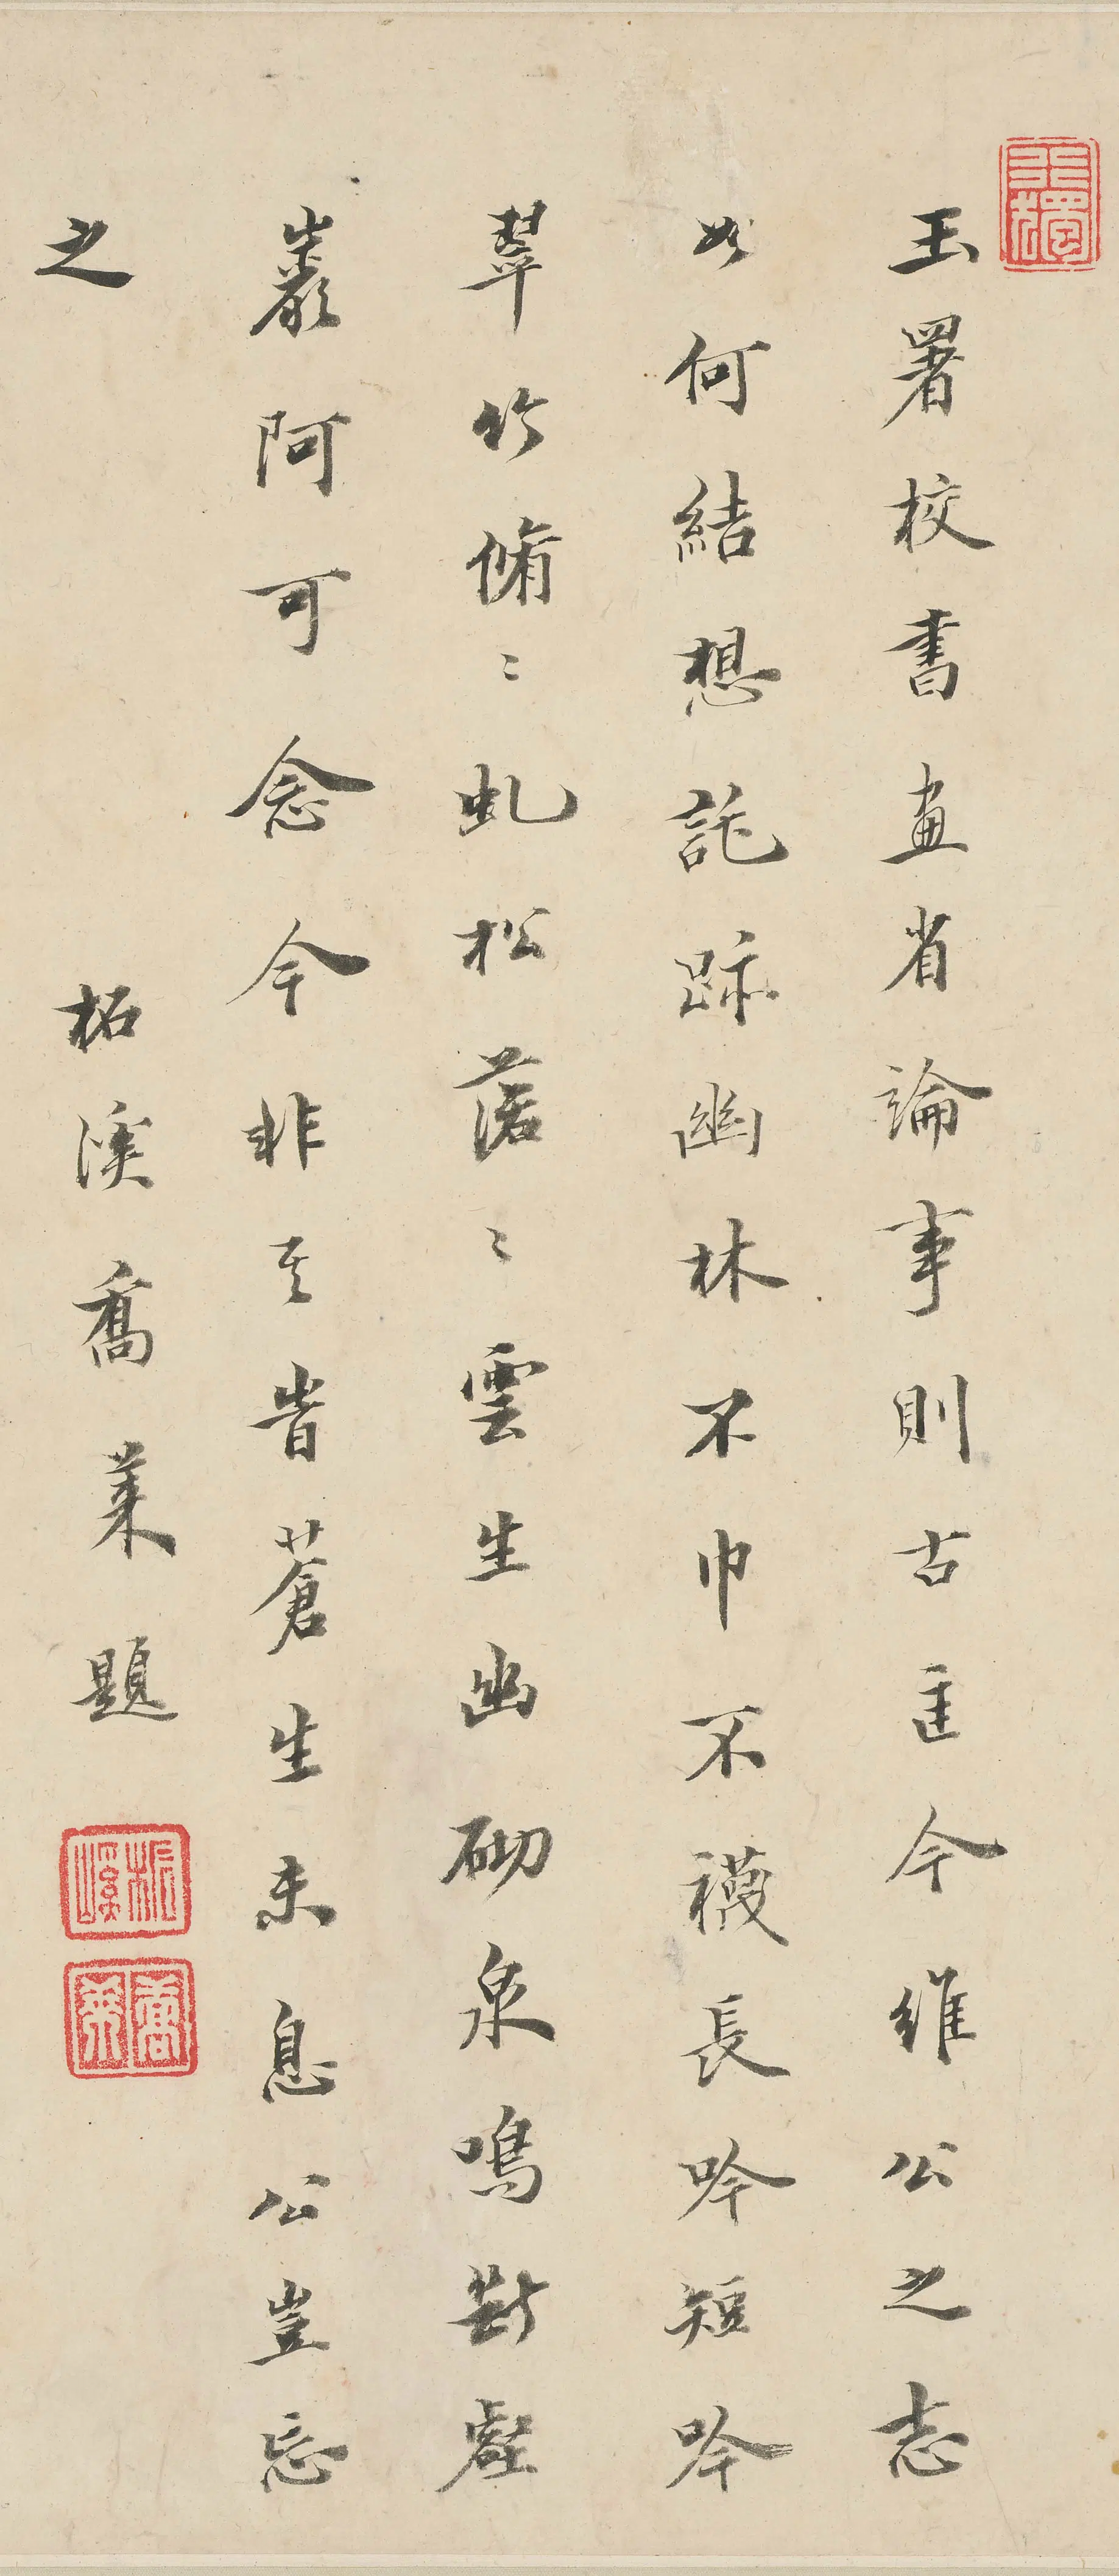 玉署校書畫省論事則古匡今維公之志
如何結想託跡幽林不巾不襪長吟短吟
翠竹翛〻虬松落〻雲生幽砌泉鳴斷壑
巖阿可念今非其昔蒼生未息公豈忘
之
柘溪喬萊題
柘溪
喬萊